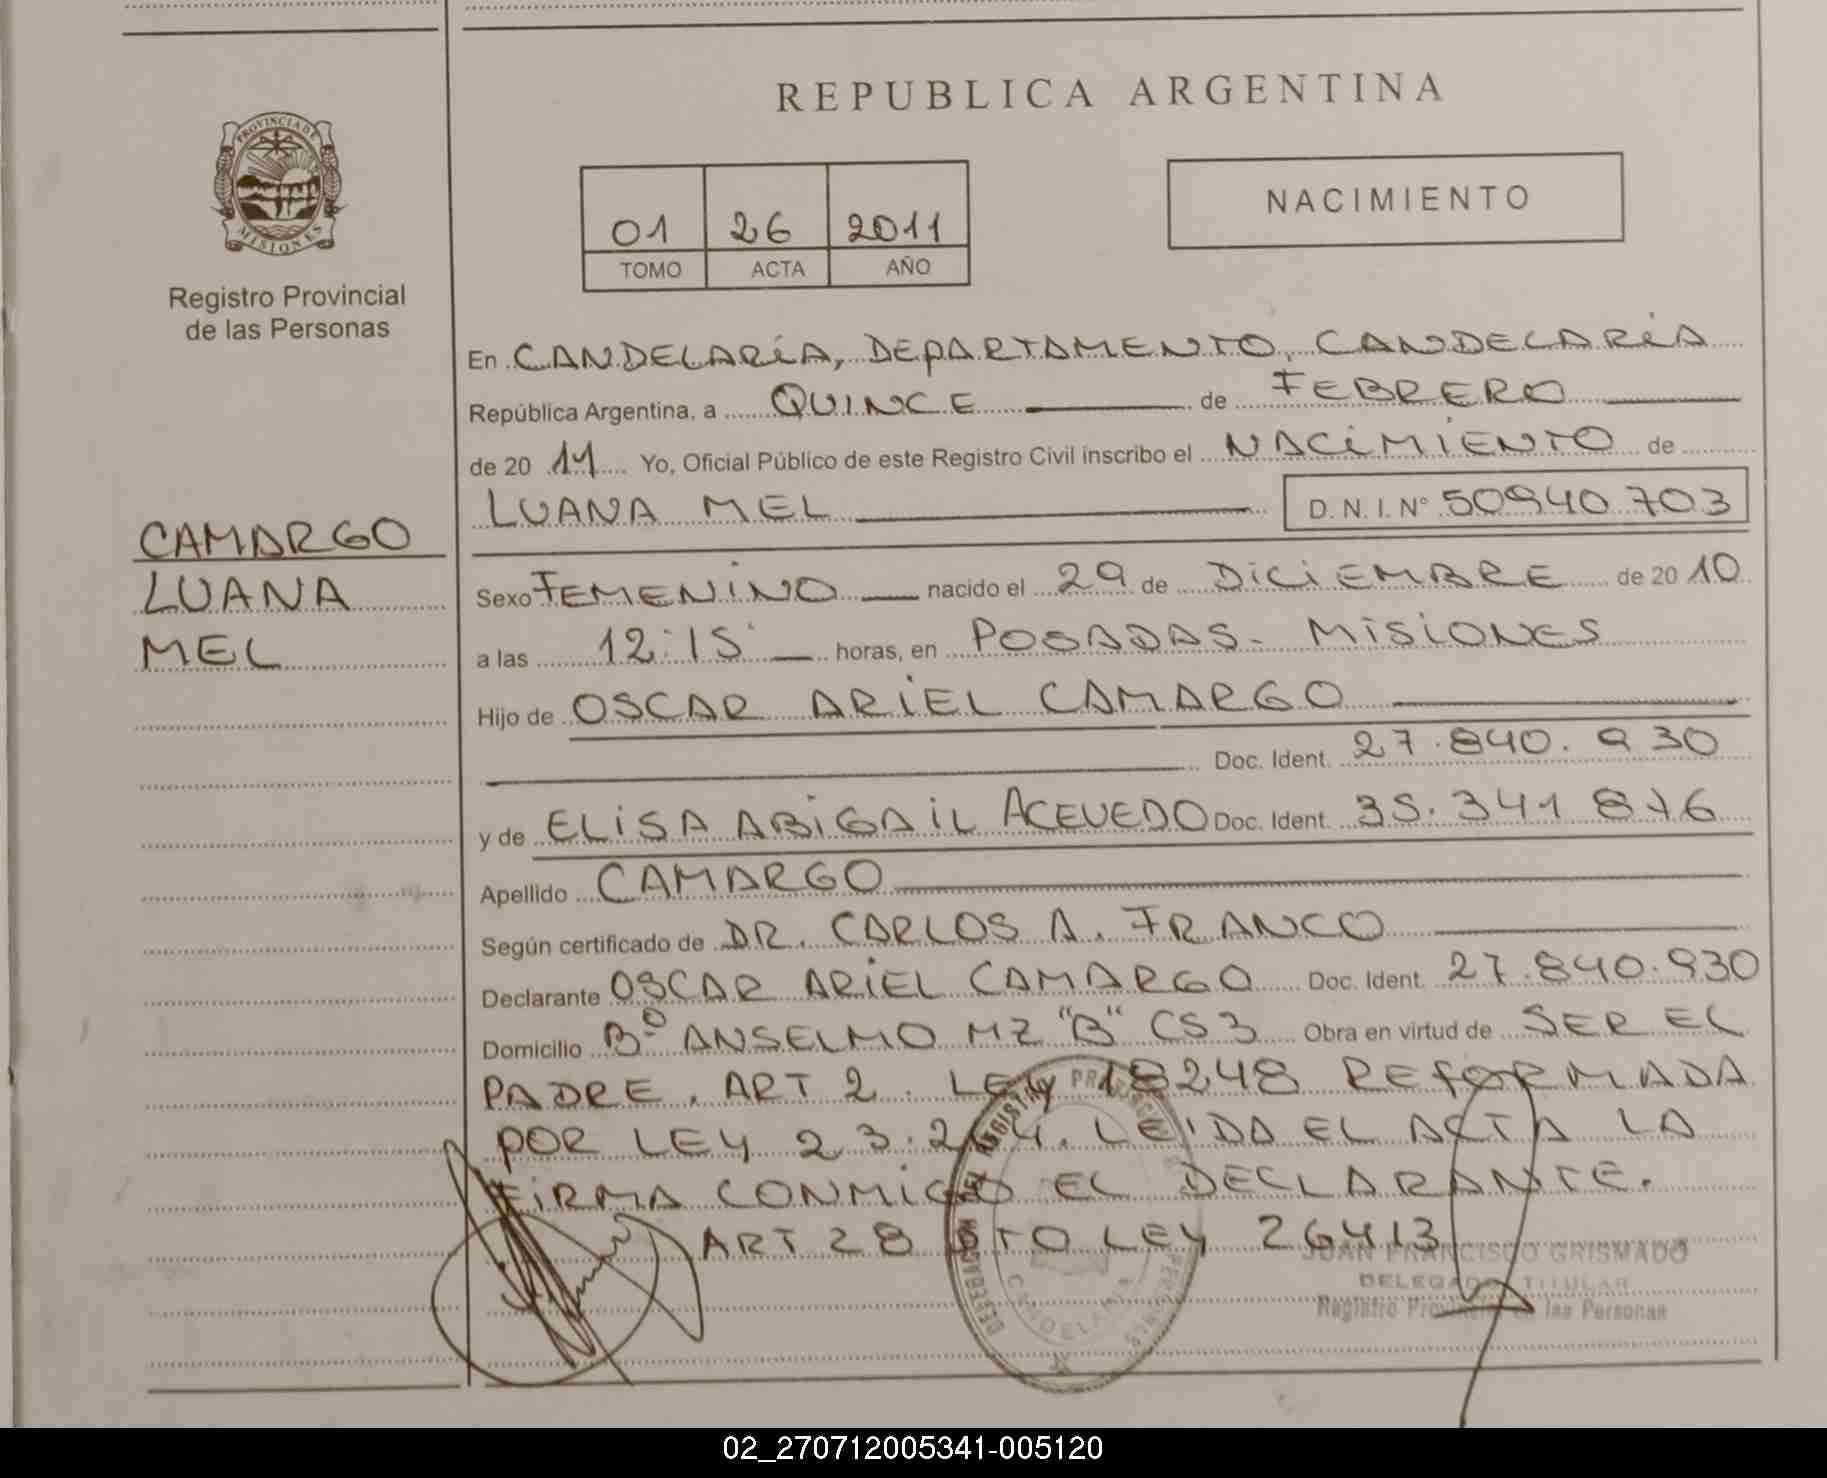 REPUBLICA ARGENTINA
PROVINCIA DE MISIONES
Registro Provincial
de las Personas
01 26 2011
TOMO ACTA AÑO
NACIMIENTO
En CANDELARIA, DEPARTAMENTO, CANDELARIA
República Argentina, a QUINCE de FEBRERO
de 20 11 Yo, Oficial Público de este Registro Civil inscribo el NACIMIENTO de
LUANA MEL D.N.I.Nº 50940703
CAMARGO
LUANA
MEL
Sexo FEMENINO nacido el 29 de DICIEMBRE de 20 10
a las 12:15 horas, en POSADAS - MISIONES
Hijo de OSCAR ARIEL CAMARGO
Doc. Ident. 27.840.930
y de ELISA ABIGAIL ACEVEDO Doc. Ident. 35.341
Apellido CAMARGO
Según certificado de DR. CARLOS A. FRANCO
Declarante OSCAR ARIEL CAMARGO Doc. Ident. 27.840.930
Domicilio Bº ANSELMO MZ "B" CS 3 Obra en virtud de SER EL
PADRE. ART 2. LEY 18248 REFORMADA
POR LEY 23.264. LEIDA EL ACTA LA
FIRMA CONMIGO EL DECLARANTE.
ART 28 LEY 26413
JUAN FRANCISCO GRISMADO
DELEGADO TITULAR
Registro Provincial de las Personas
CANDELARIA
02_270712005341-005120